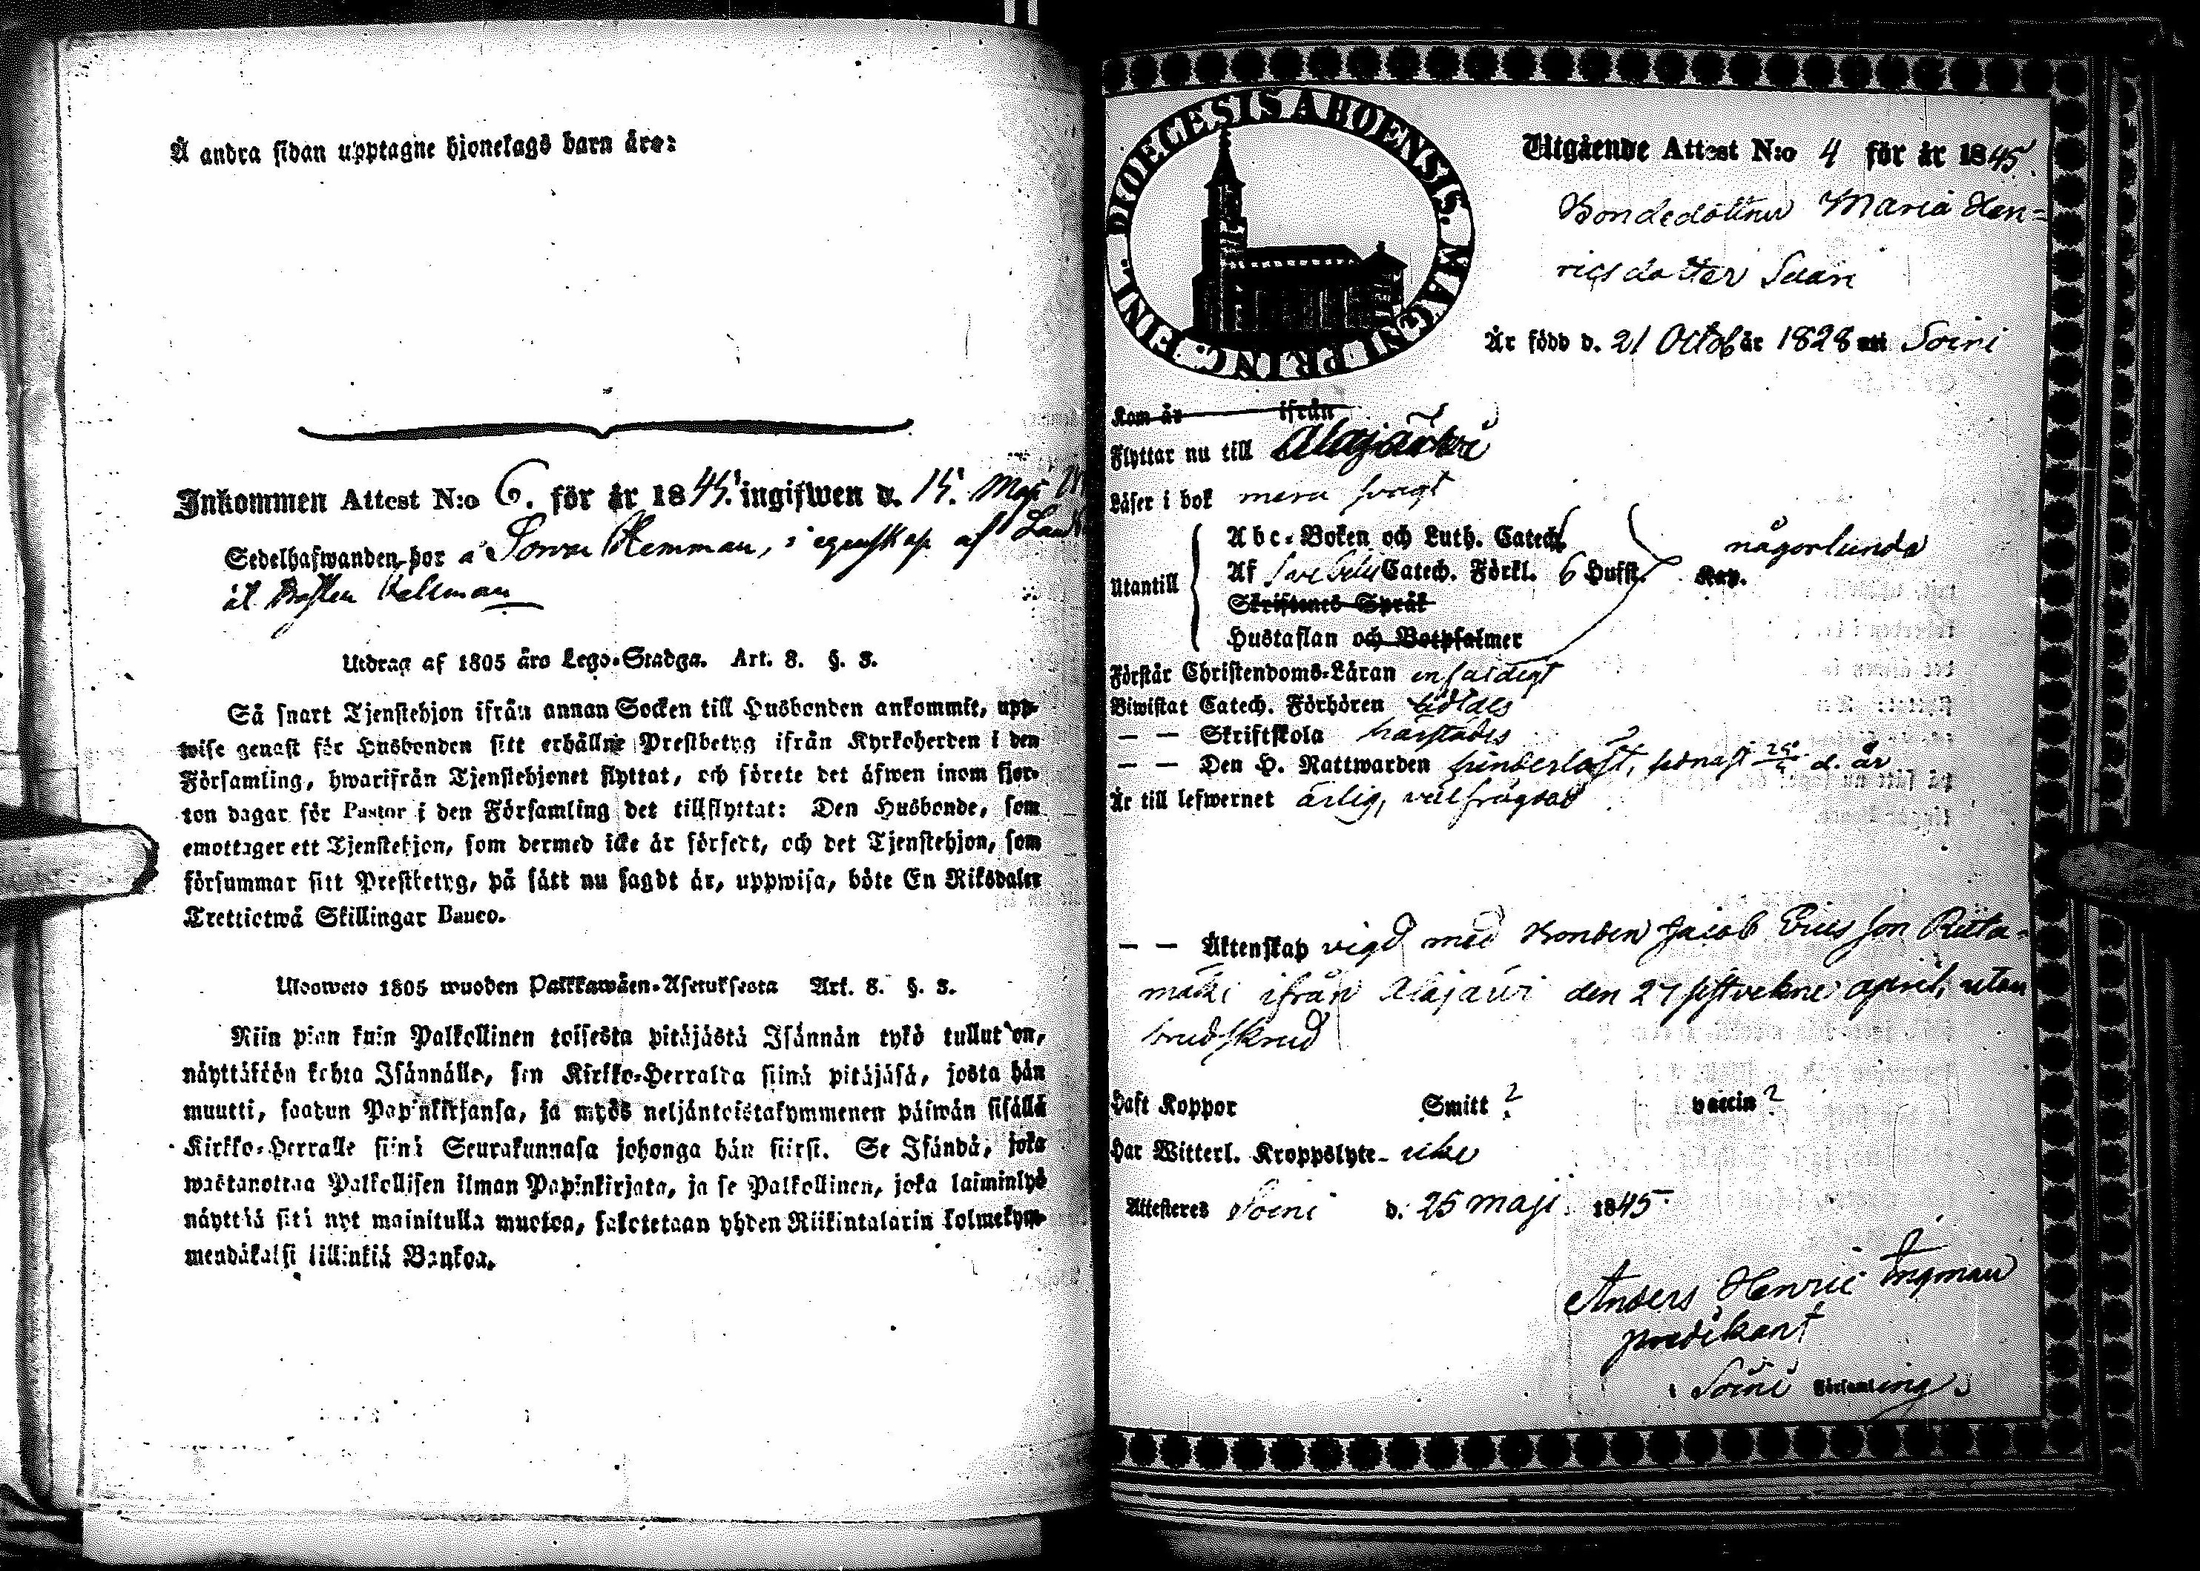 Å andra sidan upptagne hjonelags barn äro:
Inkommen Attest N:o 6. för år 1845. ingifwen d. 15. Maji
Sedelhafwanden bor å Hemman, i egenskap af
Utdrag af 1805 års Lego-Stadga. Art. 8. §. 3.
Så snart Tjenstehjon ifrån annan Socken till Husbonden ankommit, upp-
wise genast för Husbonden sitt erhållne Prestbetyg ifrån Kyrkoherden i den
Församling, hwarifrån Tjenstehjonet flyttat, och förete det äfwen inom fjor-
ton dagar för Pastor i den Församling det tillflyttat: Den Husbonde, som
emottager ett Tjenstehjon, som dermed icke är försedt, och det Tjenstehjon, som
försummar sitt Prestbetyg, på sätt nu sagdt är, uppwisa, böte En Riksdaler
Trettiotwå Skillingar Banco.
Ulosweto 1805 wuoden Palkkawäen-Asetuksesta Art. 8. §. 3.
Niin pian kuin Palkollinen toisesta pitäjästä Isännän tykö tullut on,
näyttäköön kohta Isännälle, sen Kirkko-Herralda siinä pitäjäsä, josta hän
muutti, saadun Papinkirjansa, ja myös neljäntoistakymmenen päiwän sisällä
Kirkko-Herralle siinä Seurakunnasa johonga hän siirsi. Se Isändä, joka
wastanottaa Palkollisen ilman Papinkirjata, ja se Palkollinen, joka laiminlyö
näyttää sitä nyt mainitulla muotoa, sakotetaan yhden Riikintalarin kolmekym-
mendäkaksi killinkiä Bankoa.
DIOECESIS ABOENSIS. MAGNI PRINC. FINL.
Utgående Attest N:o 4 för år 1845.
Bondedottren Maria Hen-
ricsdotter Suari
Är född d. 21 Octob år 1828 uti Soini
Kom år ifrån
Flyttar nu till Alajärvi
Läser i bok mera svagt
Abc-Boken och Luth. Catech.
Utantill Af Svebelii Catech. Förkl. 6 Hufst. Kap. någorlunda
Skriftenes Språk
Hustaflan och Botpsalmer
Förstår Christendoms-Läran enfaldigt
Biwistat Catech. Förhören
— — Skriftskola härstädes
— — Den H. Nattwarden hinderlöst, sednast d. år
Är till lefwernet ärlig, välfrägdad
— — Äktenskap vigd med Bonden Jacob Ericsson Riita-
mäki ifrån Alajärvi den 27 sistvekne april, utan
brudskrud
Haft Koppor Smitt ? vaccin ?
Har Witterl. Kroppslyte- icke
Attesteras Soini d. 25 maji 1845
Anders Henric Ingman
predikant
Soini Församling